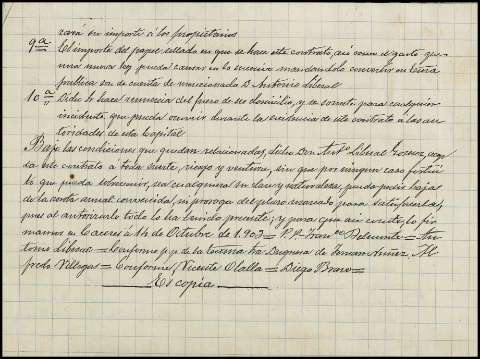 cará su importe á los propietarios
9ª El importe del papel sellado en que se hace este contrato, así como el gasto que
una nueva ley pueda causar en lo sucesivo mandándolo convertir en Escra
pública son de cuenta de mencionado D. Antonio Liberal
10ª Dicho Sr hace renuncia del fuero de su domicilio, y se somete para cualquier
incidente, que pueda ocurrir durante la existencia de este contrato á las au-
toridades de esta Capital
Bajo las condiciones que quedan relacionadas, dicho Don Antº Liberal
da este contrato á toda suerte, riesgo y ventura, sin que por ningún caso fortúi-
to que pueda sobrevenir, sea cualquiera su clase y naturaleza, pueda pedir baja
de la renta anual convenida, ni prórroga del plazo marcado para satisfacerlas,
pues al autorizarlo todo lo ha tenido presente; y para que así conste, lo fir-
mamos en Cáceres á 14 de Octubre de 1.903 = P.P. Franco Belmonte = An-
tonio Liberal = Conforme p.p. de la Excma Sra Duquesa de Fernan Núñez, Al-
fredo Villegas = Conforme, Vicente Olalla = Diego Bravo =
Es copia